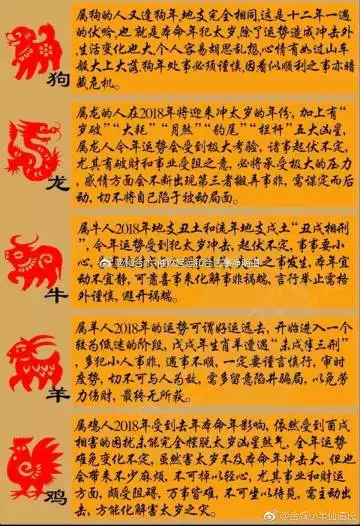 属狗的人又逢狗年,地支完全相同,这是十二年一遇
的伏吟,也就是本命年犯太岁除了运势造成冲击外
生活变化也大个人容易胡思乱想,心情有如过山车
般大上大落狗年处事必须谨慎,因看似顺利之事亦暗
藏危机。
狗
属龙的人在2018年将迎来冲太岁的年份,加上有“
岁破”“大耗”“月煞”“豹尾”“栏杆”五大凶星,
属龙人今年运势会受到极大考验,诸事起伏不定,
尤其有破财和事业受阻之意,必将承受极大的压力
,感情方面会不断出现第三者搬弄事非,需谋定而后
动,切不将自己陷于被动局面。
龙
属牛人2018年地支丑土和流年地支戌土“丑戌相刑
”,今年运势受到犯太岁冲击,起伏不定,事事要小
心,
之事发生,本年宜
动不宜静,可靠喜事来化解事非祸端,言行举止需格
外谨慎,避开祸端。
牛
属羊人2018年的运势可谓好运远去,开始进入一个
较为低迷的阶段,戊戌年生肖羊遭遇“未戌穿三刑”
,多犯小人事非,遇事不顺,一定要谨言慎行,审时
度势,切不可与人为敌,需多留意陷井骗局,以免劳
力伤财,最终无所获。
羊
属鸡人2018年受到去年本命年影响,依然受到酉戌
相害的困扰未能完全摆脱太岁凶星煞气,全年运势
难免变化不定,虽然害太岁不及本命年冲击大,但也
会带来不少麻烦,不可掉以轻心,尤其事业和财运
方面,颇受阻碍,万事皆难,不可坐以待毙,需主动出
去,方能化解害太岁之灾。
鸡
@金城小半仙道长